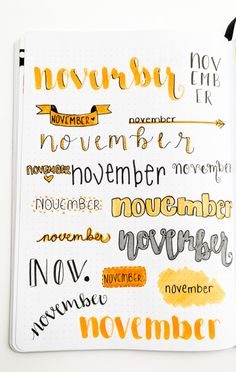 november
NOV
EMB
ER
NOVEMBER
november
november
november
november
november
NOVEMBER
november
november
november
NOV.
NOVEMBER
november
november
november